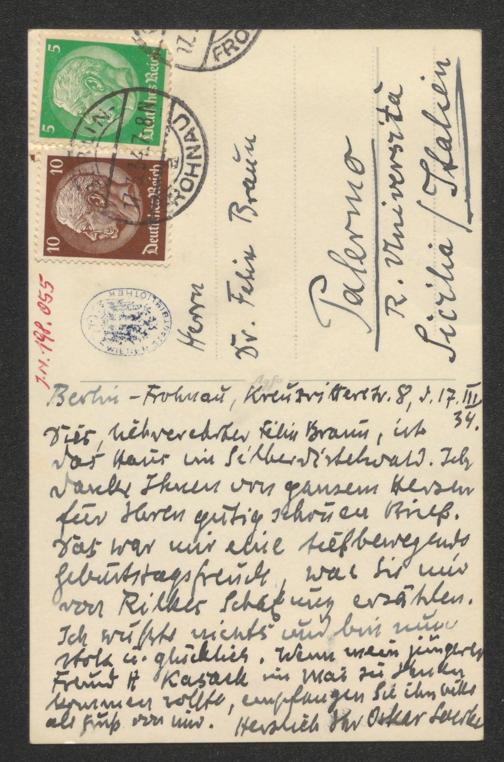 5
Deutsches Reich
10
Deutsches Reich
FROHNAU
Herrn
Dr. Felix Braun
Palermo
R. Università
Sicilia / Italien
I.N. 198.055
Berlin-Frohnau, Kreuzritterstr. 8, d. 17. III
34.
Dies, lieb verehrter Felix Braun, ist
das Haus im Silberdistelwald. Ich
danke Ihnen von ganzem Herzen
für Ihren gütig schönen Brief.
Das war mir eine tiefbewegende
Geburtstagsfreude, was Sie mir
von Rilkes Schätzung erzählen.
Ich wußte nichts und bin nun
stolz u. glücklich. Wenn mein jüngerer
Freund H Kasack im Mai zu Ihnen
kommen sollte, empfangen Sie ihn bitte
als Gruß von mir. Herzlich Ihr Oskar Loerke